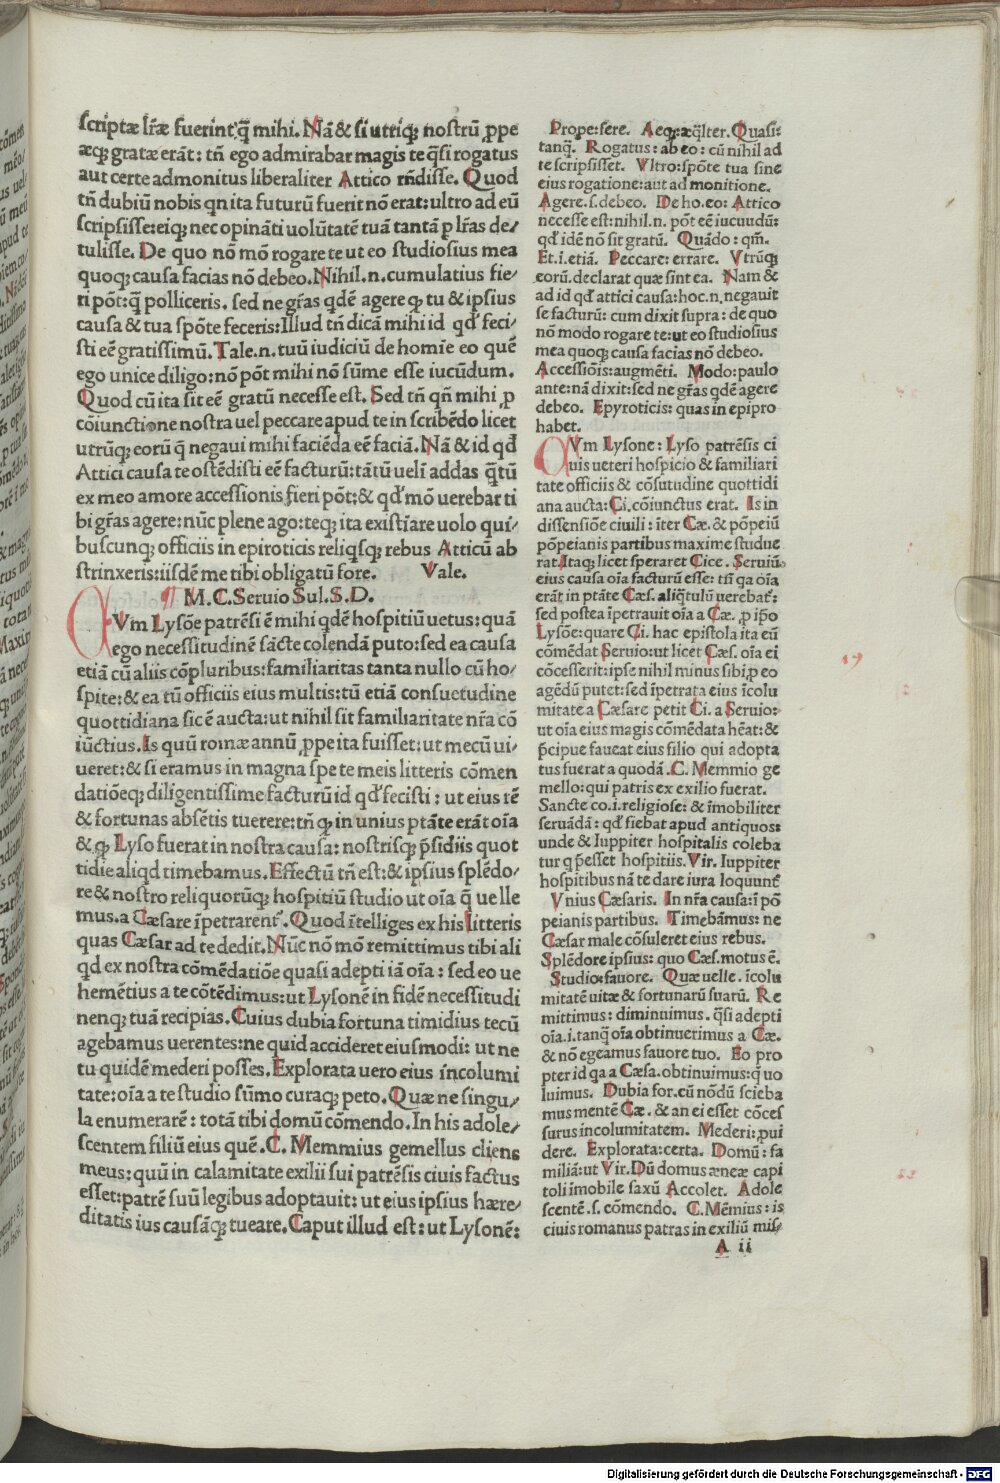 scriptæ lr̃æ fuerint:q̃ mihi. Nã & si utriq; nostrũ ꝓpe
æq; gratæ erãt: tñ ego admirabar magis te q̃si rogatus
aut certe admonitus liberaliter Attico rñdisse. Quod
tñ dubiũ nobis qn ita futurũ fuerit nõ erat: ultro ad eũ
scripsisse: eiq; nec opinãti uolũtatẽ tuã tantã ꝑ lr̃as de/
tulisse. De quo nõ mõ rogare te ut eo studiosius mea
quoq; causa facias nõ debeo. Nihil.n.cumulatius fie/
ri põt:q̃ polliceris. sed ne gr̃as qdẽ agere q tu & ipsius
causa & tua spõte feceris: Illud tñ dicã mihi id qď feci/
sti eẽ gratissimũ. Tale.n.tuũ iudiciũ de homĩe eo quẽ
ego unice diligo: nõ põt mihi nõ sũme esse iucũdum.
Quod cũ ita sit eẽ gratũ necesse est. Sed tñ qñ mihi ꝑ
cõiunctione nostra uel peccare apud te in scribẽdo licet
utrũq; eorũ q̃ negaui mihi faciẽda eẽ faciã. Nã & id qď
Attici causa te ostẽdisti eẽ facturũ: tãtũ ueli addas q̃tũ
ex meo amore accessionis fieri põt: & qď mõ uerebar ti
bi gr̃as agere: nũc plene ago: teq; ita existĩare uolo qui/
buscunq; officiis in epiroticis reliq̃sq; rebus Atticũ ab
strinxeris: iisdẽ me tibi obligatũ fore. Vale.
¶ M.C.Seruio Sul.S.D.
CVm Lysõe patrẽsi ẽ mihi qdẽ hospitiũ uetus: quã
ego necessitudinẽ sãcte colendã puto: sed ea causa
etiã cũ aliis cõpluribus: familiaritas tanta nullo cũ ho/
spite: & ea tũ officiis eius multis: tũ etiã consuetudine
quottidiana sic ẽ aucta: ut nihil sit familiaritate nr̃a cõ
iũctius. Is quũ romæ annũ ꝓpe ita fuisset: ut mecũ ui/
ueret: & si eramus in magna spe te meis litteris cõmen
datiõeq; diligentissime facturũ id qď fecisti: ut eius rẽ
& fortunas absẽtis tuerere: tñ q in unius ptãte erãt oĩa
& q Lyso fuerat in nostra causa: nostrisq; p̃sidiis quot
tidie aliqd timebamus. Effectũ tñ est: & ipsius splẽdo/
re & nostro reliquorũq; hospitiũ studio ut oĩa q̃ uelle
mus. a Cæsare ĩpetrarent̃. Quod ĩtelliges ex his litteris
quas Cæsar ad te dedit. Nũc nõ mõ remittimus tibi ali
qd ex nostra cõmẽdatiõe quasi adepti iã oĩa: sed eo ue
hemẽtius a te cõtẽdimus: ut Lysonẽ in fidẽ necessitudi
nenq; tuã recipias. Cuius dubia fortuna timidius tecũ
agebamus uerentes: ne quid accideret eiusmodi: ut ne
tu quidẽ mederi posses. Explorata uero eius incolumi
tate: oĩa a te studio sũmo curaq; peto. Quæ ne singu/
la enumerarẽ: totã tibi domũ cõmendo. In his adole/
scentem filiũ eius quẽ. C. Memmius gemellus cliens
meus: quũ in calamitate exilii sui patrẽsis ciuis factus
esset: patrẽ suũ legibus adoptauit: ut eius ipsius hære/
ditatis ius causãq; tueare. Caput illud est: ut Lysonẽ:
Prope: fere. Aeq: æq̃lter. Quasi:
tanq̃. Rogatus: ab eo: cũ nihil ad
te scripsisset. Vltro: spõte tua sine
eius rogatione: aut ad monitione.
Agere.s.debeo. De ho.eo: Attico
necesse est: nihil.n. põt eẽ iucuudũ:
qď idẽ nõ sit gratũ. Quãdo: qm̃.
Et.i.etiã. Peccare: errare. Vtrũq;
eorũ. declarat quæ sint ea. Nam &
ad id qď attici causa: hoc.n.negauit
se facturũ: cum dixit supra: de quo
nõ modo rogare te: ut eo studiosius
mea quoq; causa facias nõ debeo.
Accessiõis: augmẽti. Modo: paulo
ante: nã dixit: sed ne gr̃as qdẽ agere
debeo. Epyroticis: quas in epipro
habet.
CVm Lysone: Lyso patrẽsis ci
uis ueteri hospicio & familiari
tate officiis & cõsutudine quottidi
ana aucta: Ci. cõiunctus erat. Is in
dissensiõe ciuili: ĩter Cæ. & põpeiũ
põpeianis partibus maxime studue
rat. Itaq; licet speraret Cice. Seruiũ
eius causa oĩa facturũ esse: tñ qa oĩa
erãt in ptãte Cæs. aliq̃tulũ uerebat̃:
sed postea ĩpetrauit oĩa a Cæ. ꝓ ip̃o
Lysõe: quare Ci. hac epistola ita eũ
cõmẽdat Seruio: ut licet Cæs. oĩa ei
cõcesserit: ipse nihil minus sibi ꝓ eo
agẽdũ putet: sed ĩpetrata eius ĩcolu
mitate a Cæsare petit Ci. a Seruio:
ut oĩa eius magis cõmẽdata hẽat: &
p̃cipue faueat eius filio qui adopta
tus fuerat a quodã. C. Memmio ge
mello: qui patris ex exilio fuerat.
Sancte co.i.religiose: & ĩmobiliter
seruãdã: qď fiebat apud antiquos:
unde & Iuppiter hospitalis coleba
tur q p̃esset hospitiis. Vir. Iuppiter
hospitibus nã te dare iura loquunt̃
Vnius Cæsaris. In nr̃a causa: ĩ põ
peianis partibus. Timebãmus: ne
Cæsar male cõsuleret eius rebus.
Splẽdore ipsius: quo Cæs. motus ẽ.
Studio: fauore. Quæ uelle. ĩcolu
mitatẽ uitæ & fortunarũ suarũ. Re
mittimus: diminuimus. q̃si adepti
oĩa.i.tanq̃ oĩa obtinuerimus a Cæ.
& nõ egeamus fauore tuo. Eo pro
pter id qa a Cæsa. obtinuimus: q̃ uo
luimus. Dubia for. cũ nõdũ scieba
mus mentẽ Cæ. & an ei esset cõces
surus incolumitatem. Mederi: ꝓui
dere. Explorata: certa. Domũ: fa
miliã: ut Vir. Dũ domus æneæ capi
toli ĩmobile saxũ Accolet. Adole
scentẽ.s. cõmendo. C. Mẽmius: is
ciuis romanus patras in exiliũ mis/
A ii
Digitalisierung gefördert durch die Deutsche Forschungsgemeinschaft - DFG